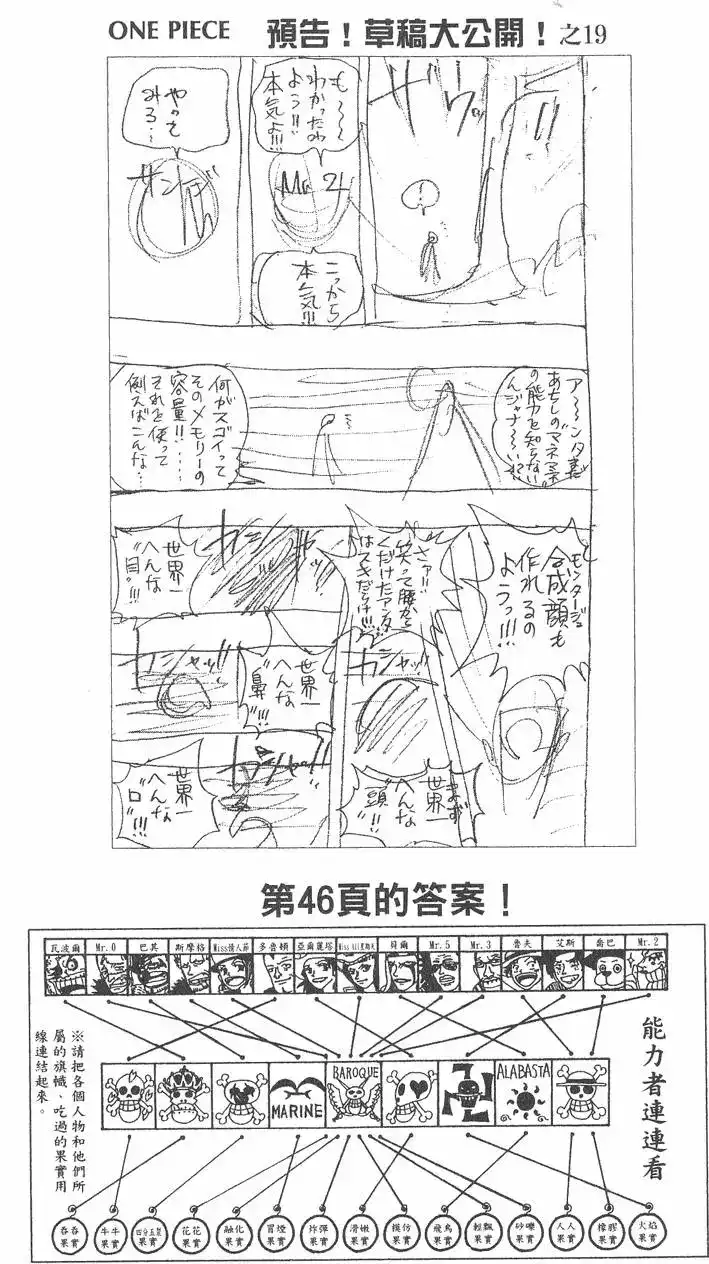 ONE PIECE 預告！草稿大公開！之19
も〜〜
わかったわ
よう!!
本気よ!!!
Mr 2
こっから
本気!!!
やって
みろ…
サンジ
ア〜〜ンタまだ
あちしの“マネマネ”
の能力を知らない
んジャナ〜〜い!?
何がスゴイって
そのメモリーの
容量!!……
それを使って
例えばこんな…
モンタージュ
合成顔も
作れるの
ようっ!!!
さァ!!
笑って腰が
くだけたアンタ
はスキだらけ!!!
ガシャッ!!
まず
世界一
へんな
“頭”!!!
世界一
へんな
“目”!!!
ガシャッ!!
世界一
へんな
“鼻”!!!
ガシャッ!!
世界一
へんな
“口”!!!
第46頁的答案！
瓦波爾 Mr.0 巴其 斯摩格 Miss情人節 多魯頓 亞爾麗塔 Miss All星期天 貝爾 Mr.5 Mr.3 魯夫 艾斯 喬巴 Mr.2
能力者連連看
※請把各個人物和他們所
屬的旗幟、吃過的果實用
線連結起來。
MARINE BAROQUE ALABASTA
吞吞果實 牛牛果實 四分五裂果實 花花果實 融化果實 冒煙果實 炸彈果實 滑嫩果實 模仿果實 飛鳥果實 輕飄果實 砂礫果實 人人果實 橡膠果實 火焰果實